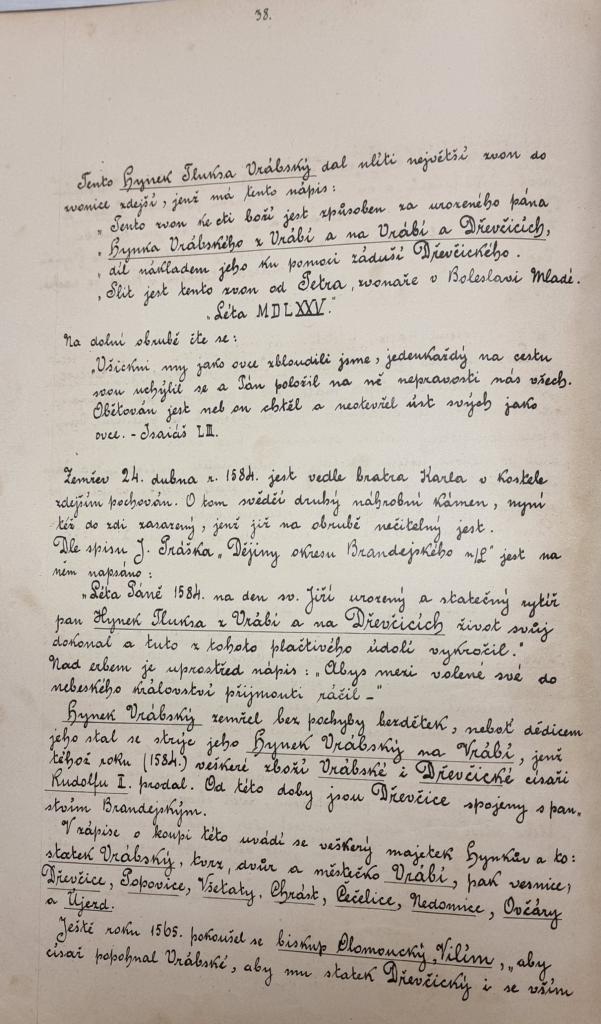 38.
Tento Hynek Tluksa Vrábský dal ulíti největší zvon do
zvonice zdejší, jenž má tento nápis:
„Tento zvon ke cti boží jest způsoben za urozeného pána
„Hynka Vrábského z Vrábí a na Vrábí a Dřevčicích,
„díl nákladem jeho ku pomoci záduší Dřevčického.
„Slit jest tento zvon od Petra, zvonaře v Boleslavi Mladé.
„Léta MDLXXV."
Na dolní obrubě čte se:
„Všickni my jako ovce zbloudili jsme, jedenkaždý na cestu
svou uchýlil se a Pán položil na něj nepravosti nás všech.
Obětován jest neb on chtěl a neotevřel úst svých jako
ovce. - Isaiáš LIII.
Zemřev 24. dubna r. 1584. jest vedle bratra Karla v kostele
zdejším pochován. O tom svědčí druhý náhrobní kámen, nyní
též do zdi zasazený, jenž již na obrubě nečitelný jest.
Dle spisu J. Práška „Dějiny okresu Brandejského n/L" jest na
něm napsáno:
„Léta Páně 1584. na den sv. Jiří urozený a statečný rytíř
pan Hynek Tluksa z Vrábí a na Dřevčicích život svůj
dokonal a tuto z tohoto plačtivého údolí vykročil."
Nad erbem je uprostřed nápis: „Abys mezi volené své do
nebeského království přijmouti ráčil -"
Hynek Vrábský zemřel bez pochyby bezdětek, neboť dědicem
jeho stal se strýc jeho Hynek Vrábský na Vrábí, jenž
téhož roku (1584.) veškeré zboží Vrábské i Dřevčické císaři
Rudolfu II. prodal. Od této doby jsou Dřevčice spojeny s pan„
stvím Brandejským.
V zápise o koupi této uvádí se veškerý majetek Hynkův a to:
statek Vrábský, tvrz, dvůr a městečko Vrábí, pak vesnice;
Dřevčice, Popovice, Všetaty, Chrást, Čečelice, Nedomice, Ovčáry
a Újezd.
Ještě roku 1565. pokoušel se biskup Olomoucký, Vilím, „aby
císař popohnal Vrábské, aby mu statek Dřevčický i se vším